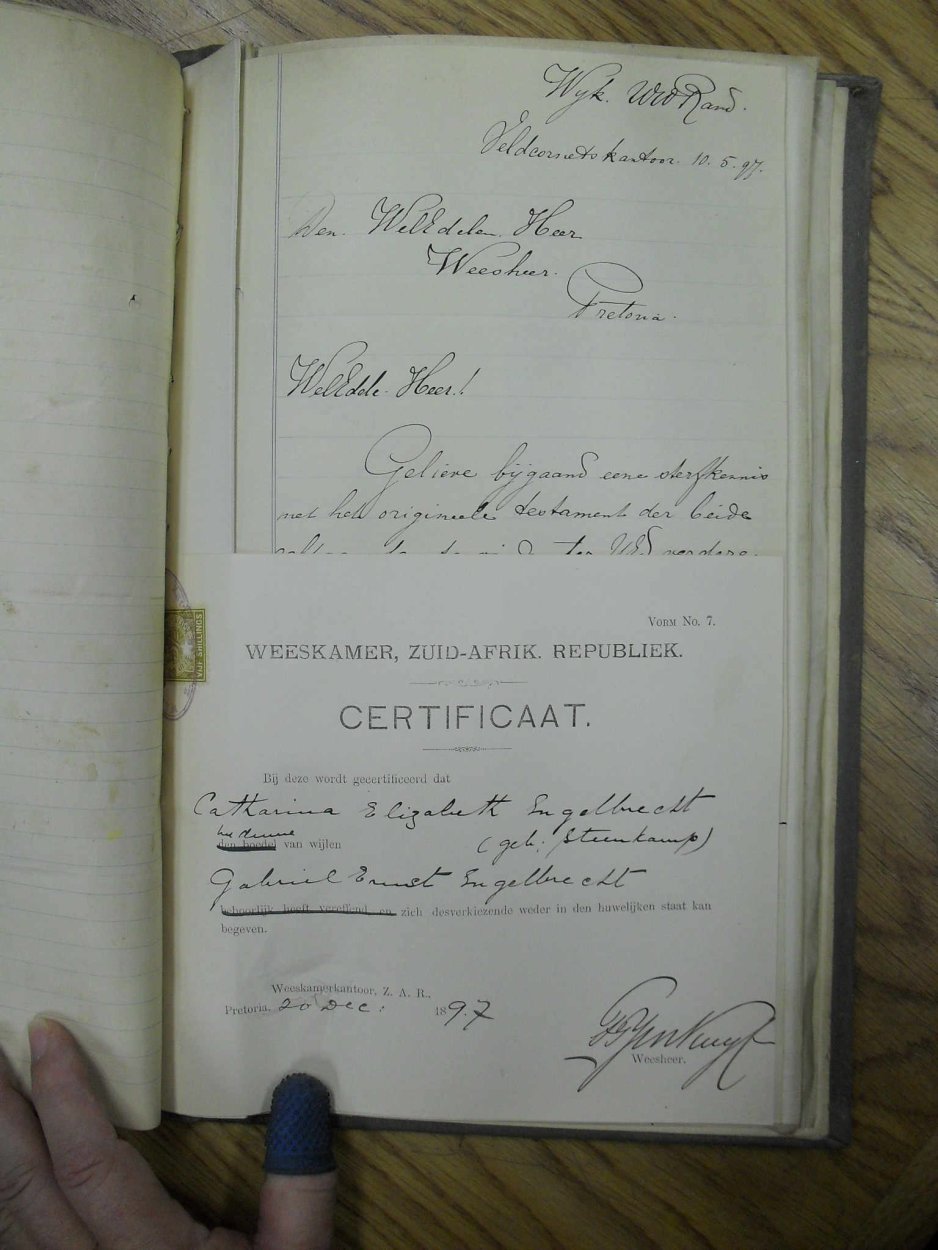 Wyk. WWRand.
Veldcornetskantoor. 10.5.97.
Den. WelEdelen. Heer
Weesheer.
Pretoria.
WelEdele. Heer!
Gelieve bijgaand eene sterfkennis
met het origineele testament der beide
ter UEd verdere
VIJF SHILLINGS
VORM No. 7.
WEESKAMER, ZUID-AFRIK. REPUBLIEK.
CERTIFICAAT.
Bij deze wordt gecertificeerd dat
Catharina Elizabeth Engelbrecht
den boedel van wijlen (geb: Steenkamp)
Gabriel Ernst Engelbrecht
behoorlijk heeft vereffend en zich desverkiezende weder in den huwelijken staat kan
begeven.
Weeskamerkantoor, Z. A. R.,
Pretoria, 20 Dec: 1897
Weesheer.